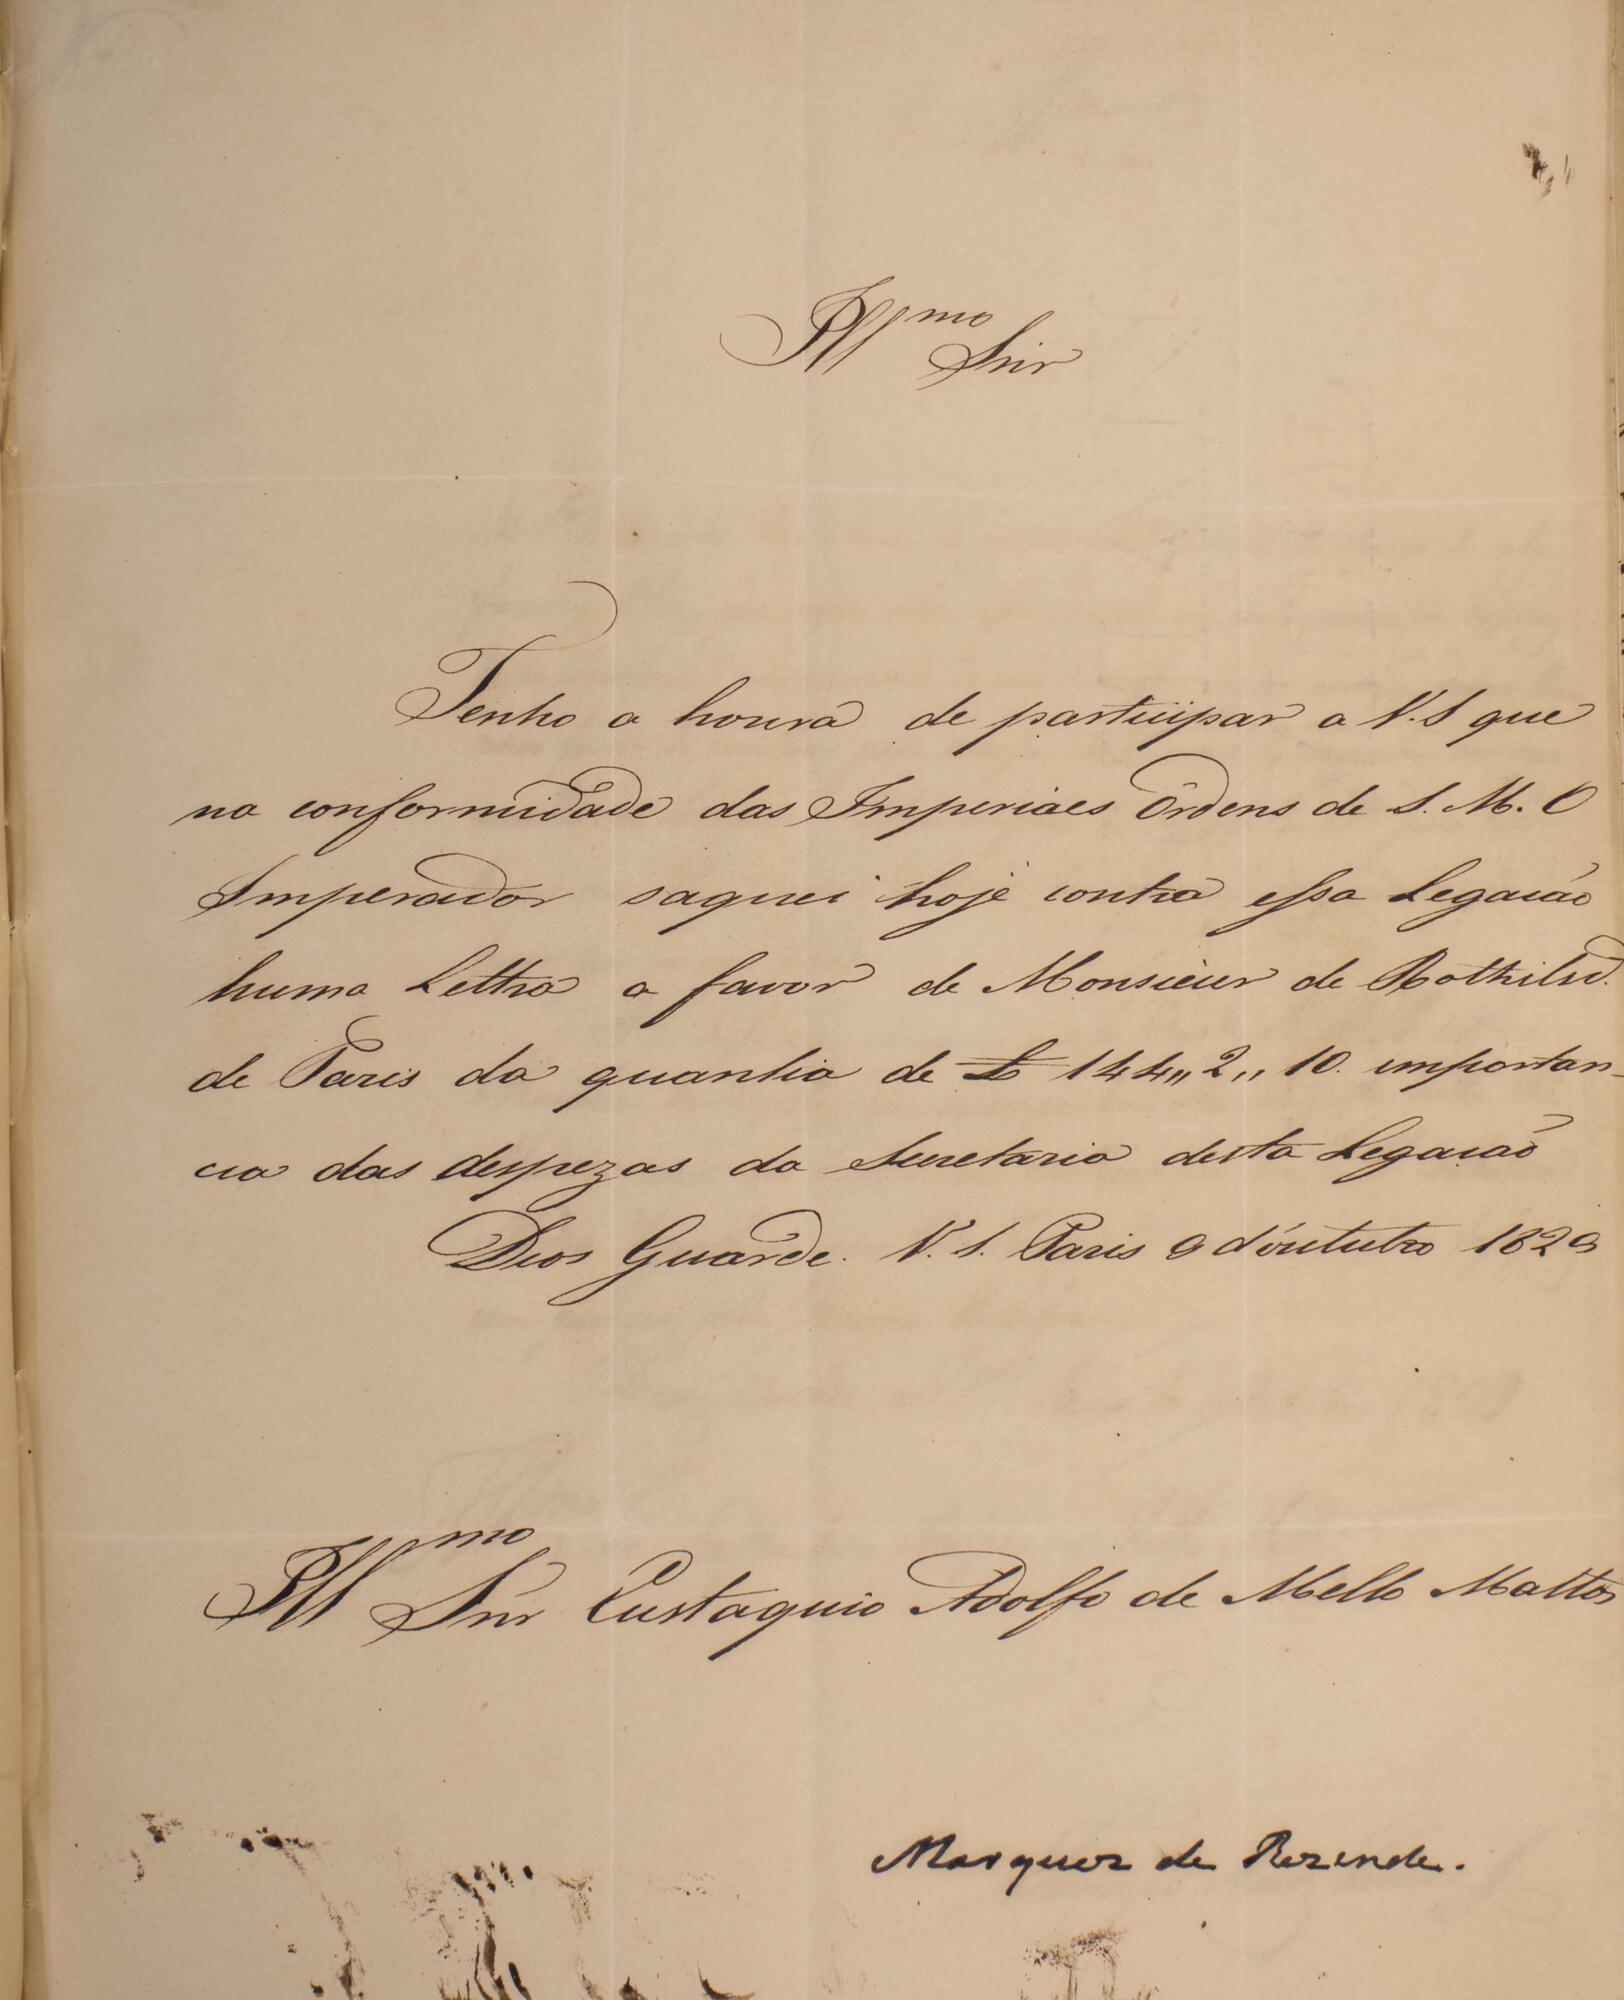 Ill.mo Snr
Tenho a honra de participar a V.S que
na conformidade das Imperiaes Ordens de S. M. O
Imperador saquei hoje contra essa Legacão
huma Lettra a favor de Monsieur de Rothilsd.
de Paris da quantia de £ 144,, 2,, 10. importan-
cia das despezas da Secretaria desta Legacaõ
Deos Guarde. V. S. Paris 9 d'outubro 1829
Ill.mo Snr Eustaquio Adolfo de Mello Mattos
Marquez de Rezende.